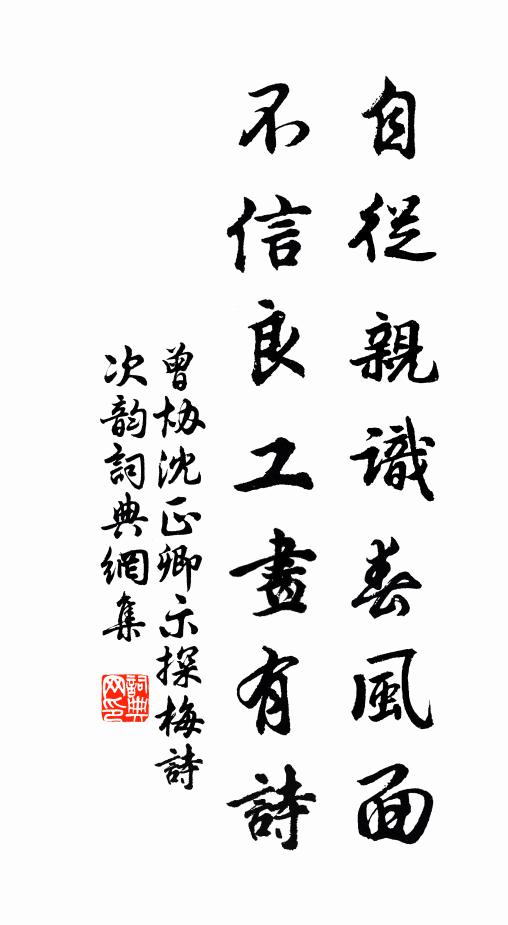 自從親識春風面
不信良工畫有詩
曾协沈正卿示探梅詩
次韵詞典網集
詞典网印